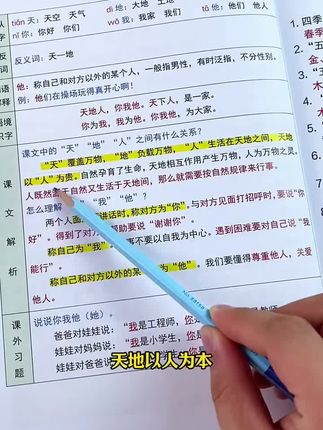 tiān 天：天空 天气
dì 地：大地 土地
nǐ 你：你好 你们
tā 他：他们 他家
反义词：天—地
他：称自己和对方以外的某个人，一般指男性，有时泛指，不分性别。
例：他们在操场玩得真开心啊！
天地人，你我他。天下人，是一家。
你为我，我为他。你我他，为大家。
课文中的“天”“地”“人”之间有什么关系？
“天”覆盖万物，“地”负载万物，“人”生活在天地之间，天地
以“人”为贵。自然孕育了生命，天地相互作用产生万物，人为万物之灵。
人既然
于自然又生活于天地间，那么就要按自然规律来行事。
怎么理解
“我”“他”？
两个人面
讲话时，称对方为“你”，与对方见面打招呼时，要说“
好”。得到了对方
助要说“谢谢你”。
称自己为“我”。
事不要以自我为中心。遇到困难自信地说“我
能行”。
称自己和对方以外的某
为“他”。我们要懂得尊重他人，关爱
他人。
课文解析
说说你我他（她）。
爸爸对娃娃说：“我是工程师，你
娃娃对妈妈说：“我是小学生，你
课外习题
天地以人为本
1. 四季
春季
2.
3.
4.